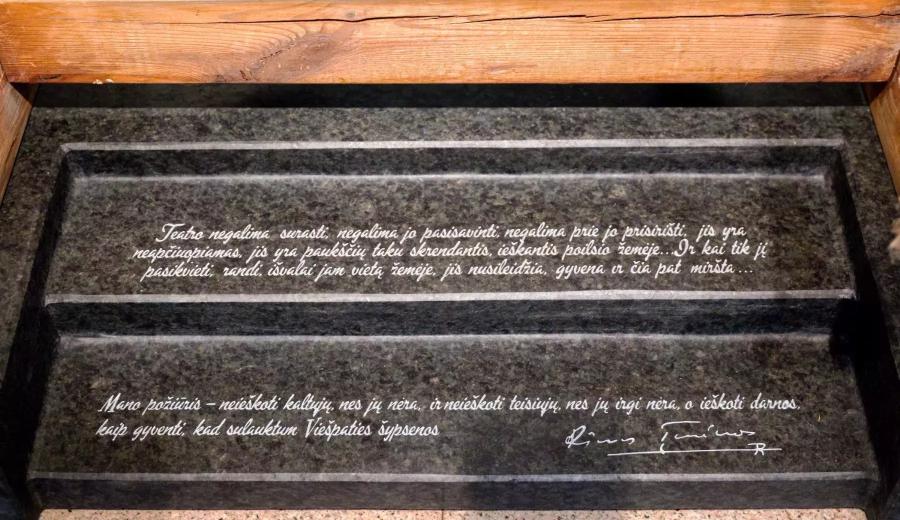 Teatro negalima surasti, negalima jo pasisavinti, negalima prie jo prisirišti, jis yra
neapčiuopiamas, jis yra paukščių taku skrendantis, ieškantis poilsio žemėje...Ir kai tik jį
pasikvieti, randi, išvalai jam vietą žemėje, jis nusileidžia, gyvena ir čia pat miršta...
Mano požiūris – neieškoti kaltųjų, nes jų nėra, ir neieškoti teisiųjų, nes jų irgi nėra, o ieškoti darnos,
kaip gyventi, kad sulauktum Viešpaties šypsenos
Rimas Tuminas